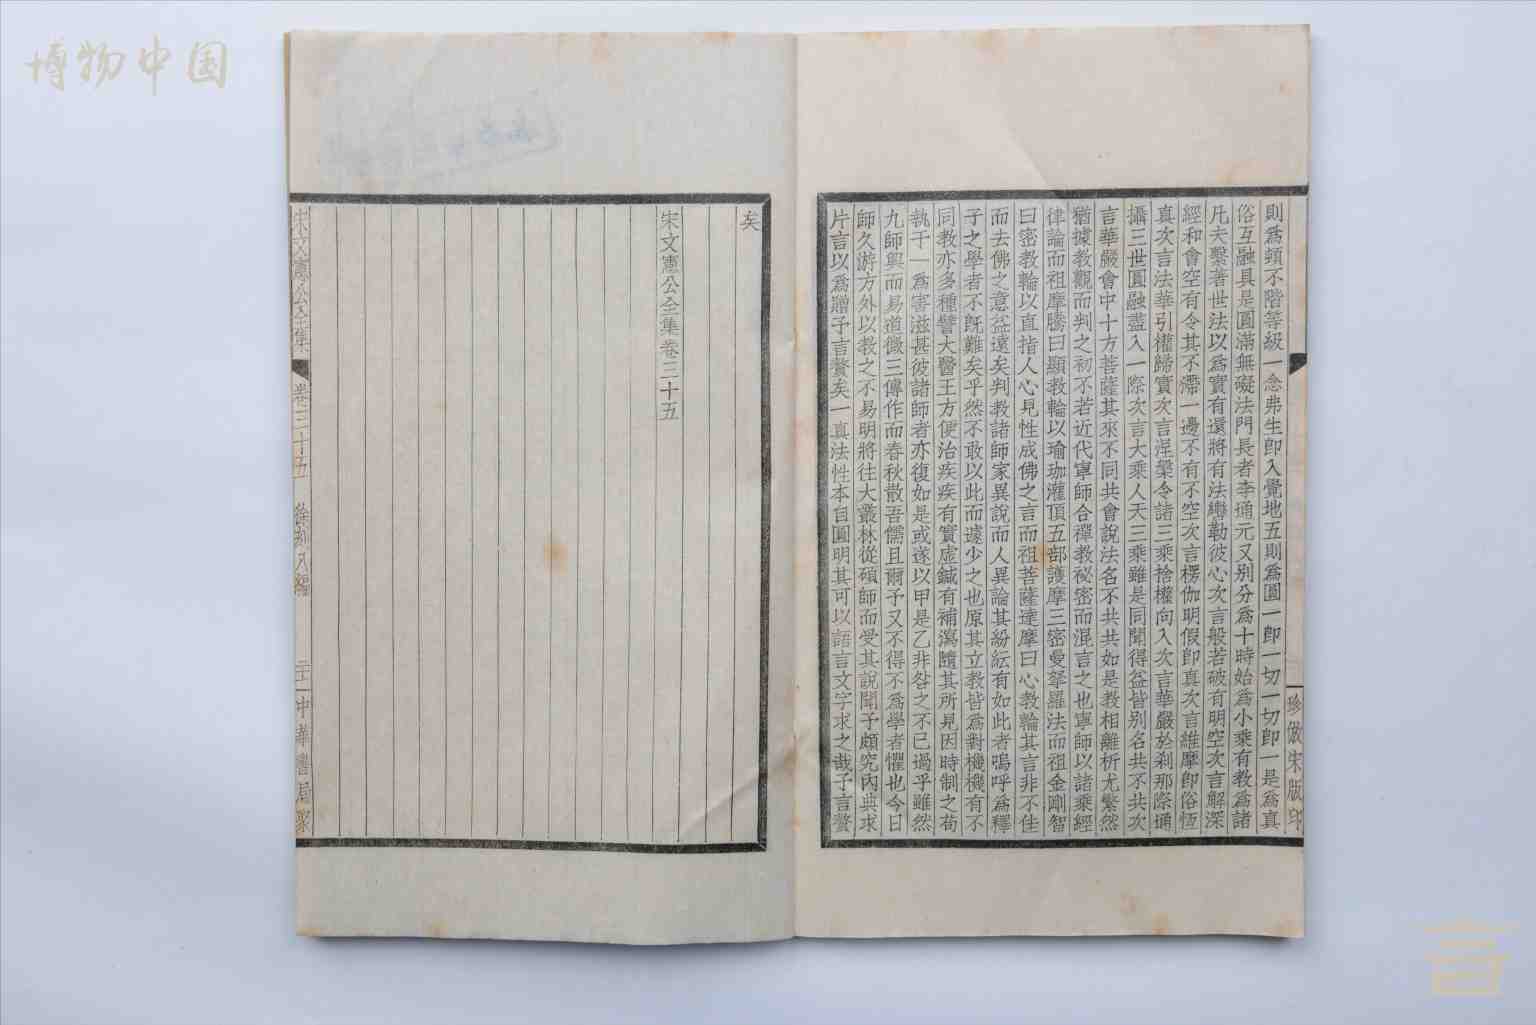 博物中国
珍倣宋版印
則爲頓不階等級一念弗生即入覺地五則爲圓一即一切一切即一是爲真
俗互融具是圓滿無礙法門長者李通元又別分爲十時始爲小乘有教爲諸
凡夫繫著世法以爲實有還將有法轡勒彼心次言般若破有明空次言解深
經和會空有令其不滯一邊不有不空次言楞伽明假即真次言維摩即俗恆
真次言法華引權歸實次言涅槃令諸三乘捨權向入次言華嚴於刹那際通
攝三世圓融盡入一際次言大乘人天三乘雖是同聞得益皆别名共不共次
言華嚴會中十方菩薩其來不同共會說法名不共共如是教相離析尤繁然
猶據教觀而判之初不若近代寧師合禪教祕密而混言之也寧師以諸乘經
律論而祖摩騰曰顯教輪以瑜珈灌頂五部護摩三密曼拏羅法而祖金剛智
曰密教輪以直指人心見性成佛之言而祖菩薩達摩曰心教輪其言非不佳
而去佛之意益遠矣判教諸師家異說而人異論其紛紜有如此者嗚呼爲釋
子之學者不既難矣乎然不敢以此而遽少之也原其立教皆爲對機機有不
同教亦多種譬大醫王方便治疾疾有實虛鍼有補瀉隨其所見因時制之苟
執于一爲害滋甚彼諸師者亦復如是或遂以甲是乙非咎之不已過乎雖然
九師興而易道微三傳作而春秋散吾儒且爾予又不得不爲學者懼也今日
師久游方外以教之不易明將往大叢林從碩師而受其說聞予頗究內典求
片言以爲贈予言贅矣一真法性本自圓明其可以語言文字求之哉予言贅
矣
宋文憲公全集卷三十五
宋文憲公全集 卷三十五 徐刻八編 二十一 中華書局聚
言